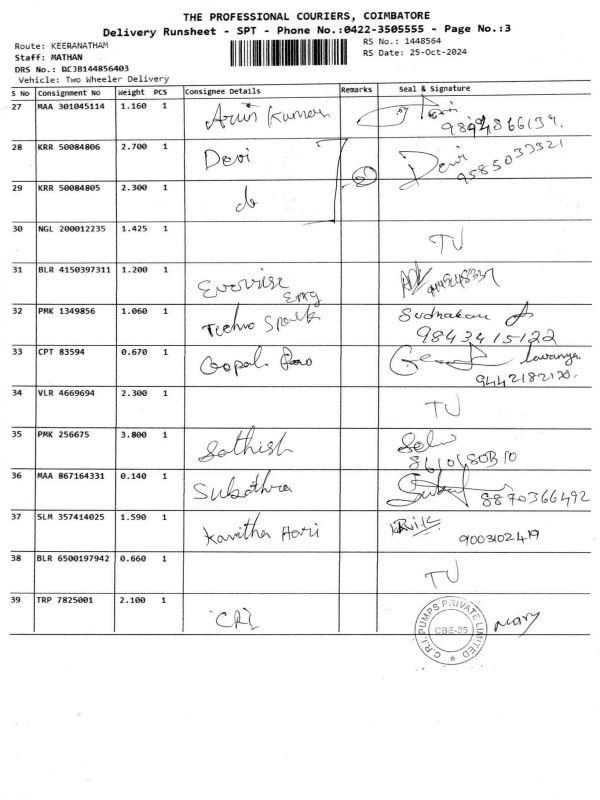 THE PROFESSIONAL COURIERS, COIMBATORE
Delivery Runsheet - SPT - Phone No.:0422-3505555 - Page No.:3
Route: KEERANATHAM
RS No.: 1448564
Staff: MATHAN
RS Date: 25-Oct-2024
DRS No.: DCJB144856403
Vehicle: Two Wheeler Delivery
S No Consignment No Weight PCS Consignee Details Remarks Seal & Signature
27 MAA 301045114 1.160 1 Arun Kumar
28 KRR 50084806 2.700 1 Devi Devi
9585033321
29 KRR 50084805 2.300 1 do
30 NGL 200012235 1.425 1 TU
31 BLR 4150397311 1.200 1
Eng
32 PMK 1349856 1.060 1 Techno Spark Sudhakar
9843415122
33 CPT 83594 0.670 1 Gopal Rao lavanya
9442182170.
34 VLR 4669694 2.300 1 TU
35 PMK 256675 3.800 1 Sathish Selvi
36 MAA 867164331 0.140 1 Subathra
8870366492
37 SLM 357414025 1.590 1 Kavitha Hari
9003102419
38 BLR 6500197942 0.660 1 TU
39 TRP 7825001 2.100 1 CRI
C.R.I. PUMPS PRIVATE LIMITED
CBE-35
mary